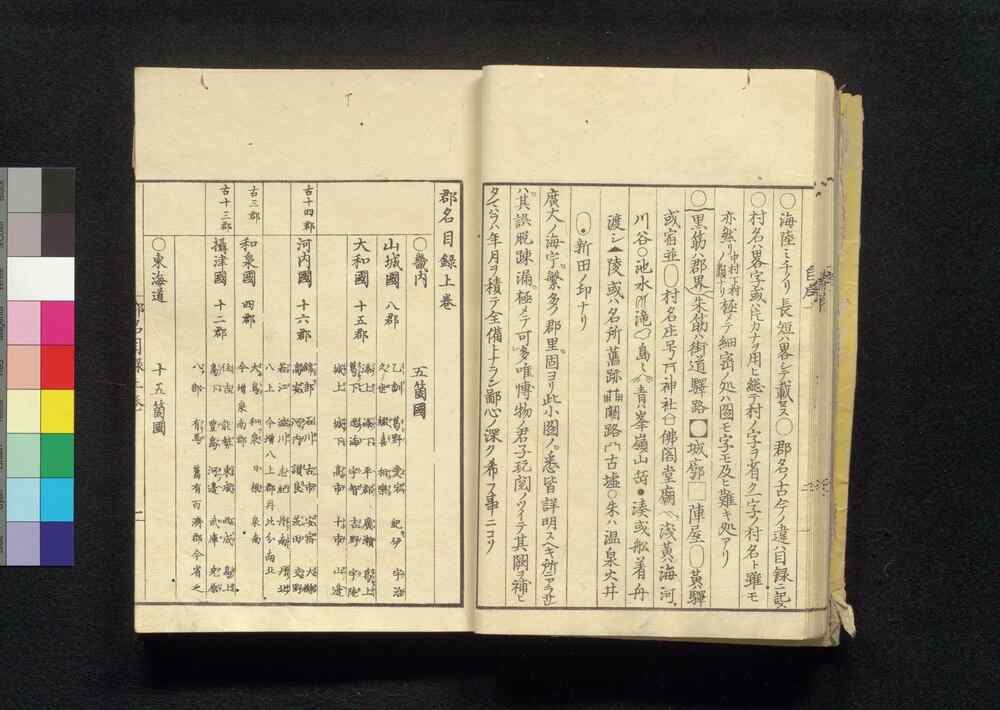 〇海陸ミチノリ長短ハ畧シテ載セス〇郡名ノ古今ノ違ハ目録ニ記ス
〇村名ハ畧字或ハ片カナヲ用ヒ総テ村ノ字ヲ省ク一字ノ村名ト雖モ
亦然リ中村下村ノ類ナリ極メテ細密ノ処ハ圖モ字モ及ヒ難キ処アリ
〇黒筋ハ郡界朱筋ハ街道驛路城廓陣屋黄驛
或宿並村名庄号神社佛閣堂廟浅黄海河
川谷池水滝島青峯嶺山岳湊或舩着舟
渡シ陵或ハ名所舊跡關路古墟〇朱ハ温泉火井
新田ノ印ナリ
廣大ノ海宇繁多ノ郡里固ヨリ此小圖ノ悉皆詳明スヘキ所ニアラサレ
ハ其誤脱踈漏極メテ可多唯博物ノ君子玩閲ノツイテ其闕ヲ補ヒ
タマハヽ年月ヲ積テ全備トナラン鄙心ノ深ク希フ事ニコソ
郡名目録上巻
〇畿内 五箇國
山城國 八郡 乙訓 葛野 愛宕 紀伊 宇治
久世 綴喜 相樂
大和國 十五郡 添上 添下 平郡 廣瀬 葛上
葛下 忍海 宇智 吉野 宇陀
城上 城下 高市 十市 山邊
古十四郡
河内國 十六郡 錦部 石川 古市 安宿 大縣
高安 河内 讃良 茨田 交野
若江 渋川 志紀 丹南 丹北
八上 今増八上郡丹北分南北
古三郡
和泉國 四郡 大鳥 和泉 日根 泉南
今増泉南郡
古十三郡
攝津國 十二郡 住吉 能勢 東成 西成 島上
島下 豊島 河邊 武庫 菟原
八部 有馬 舊有百濟郡今省之
〇東海道 十五箇國
郡名目録上巻